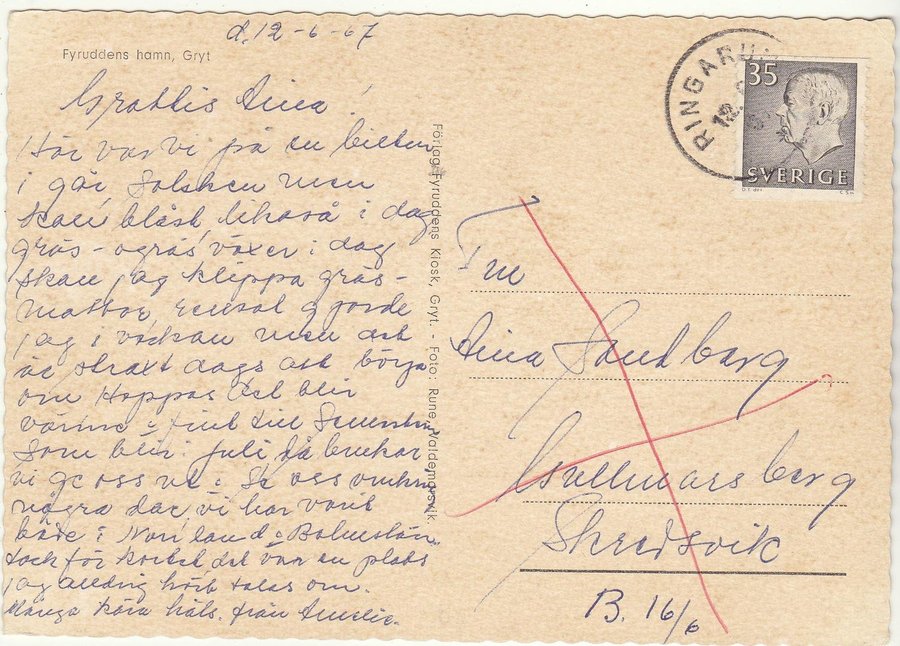 d. 12-6-67
Fyruddens hamn, Gryt
Grattis Aina!
Här var vi på en biltur
i går Solsken men
skall blåst likaså i dag
gräs - ogräs växer i dag
skall jag klippa gräs-
mattor, rensat gjorde
jag i veckan men det
är straxt dags att börja
om Hoppas det blir
värme o fint till Semestern
som blir i juli då brukar
vi ge oss ut o se oss omkring
några dar vi har varit
både i Norrland o Bohuslän
tack för kortet det var en plats
jag aldrig hört talas om.
Många kära häls. från Amelie.
Förlag: Fyruddens Kiosk, Gryt. - Foto: Rune, Valdemarsvik
RINGARUM
12.
35
SVERIGE
Fru
Aina Sandberg
Gullmarsberg
Skredsvik
B. 16/6